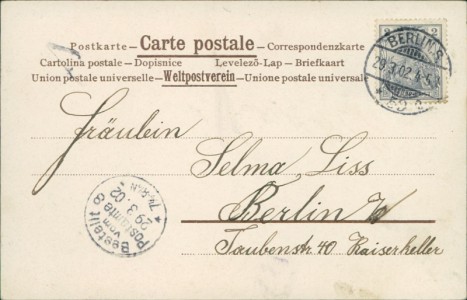 Postkarte – Carte postale – Correspondenzkarte
Cartolina postale – Dopisnice Levelező-Lap – Briefkaart
Union postale universelle – Weltpostverein – Unione postale universale
BERLIN S
29.3.02. 4-5 N.
Fräulein
Selma Liss
Berlin W
Taubenstr 40 Kaiserkeller
Bestellt
vom
Postamte 8
29.3.02